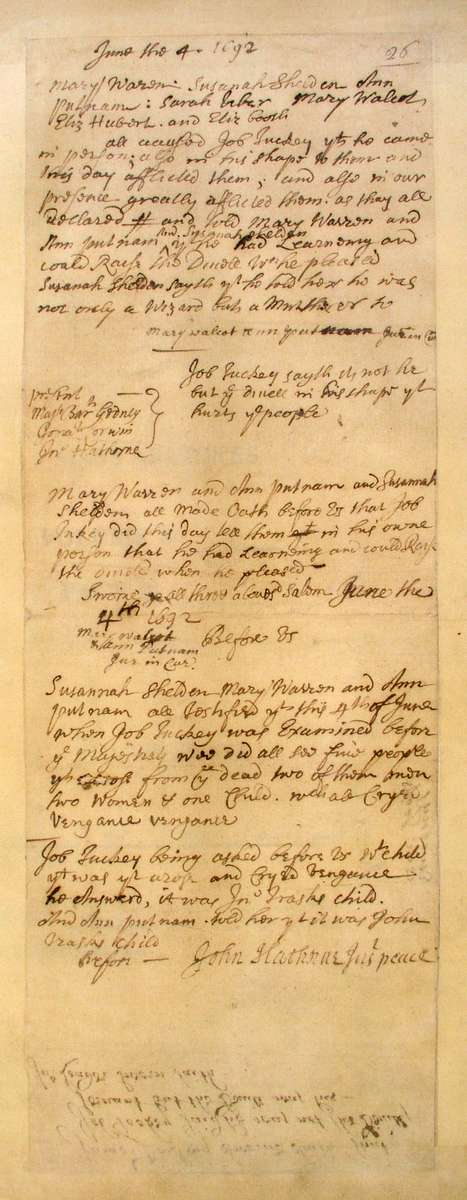 June the 4. 1692
26
Mary Warren: Susanah Shelden Ann
putnam: Sarah Biber Mary Walcot
Eliz Hubert. and Eliz booth
all accused Job Tuckey yt he came
in person; also in his shape to them and
this day afflicted them; and also in our
presence greatly afflicted them: as they all
declared and told Mary Warren and
Ann putnam And, Susanah shelden
yt he had Learneing and
could Raise the Divele wn he pleased
Susanah Shelden sayth yt he told her he was
not only a Wizard but a Murtherer
Mary walcot & Ann putnam Jur in Cur
Job Tuckey sayth its not he
but ye divell in his shape yt
hurts ye people
present
Majr Bar Gedney
Jno Hathorne
Mary Warren and Ann putnam and Susannah
Shelden all Made Oath before Us that Job
Tukey did this day tell them in his owne
person that he had Learneing and could Raise
the divele when he pleased
Sworne all three abovesd Salem June the
4th 1692
Mary walcot
& Ann Putnam
Jur in Cur.
Before Us
Susannah Shelden Mary Warren and Ann
putnam all testified yt this 4th of June
when Job Tuckey was Examined before
ye Majestrets wee did all see five people
yt arose from ye dead two of them men
two Women & one Child. wch all Cryed
vengance vengance
Job Tuckey being asked before Us wt child
yt was yt arose and Cryed vengance
he Answerd, it was Jno Trasks child.
And Ann putnam told her yt it was John
Trasks child
Before
John Hathorne Just peace